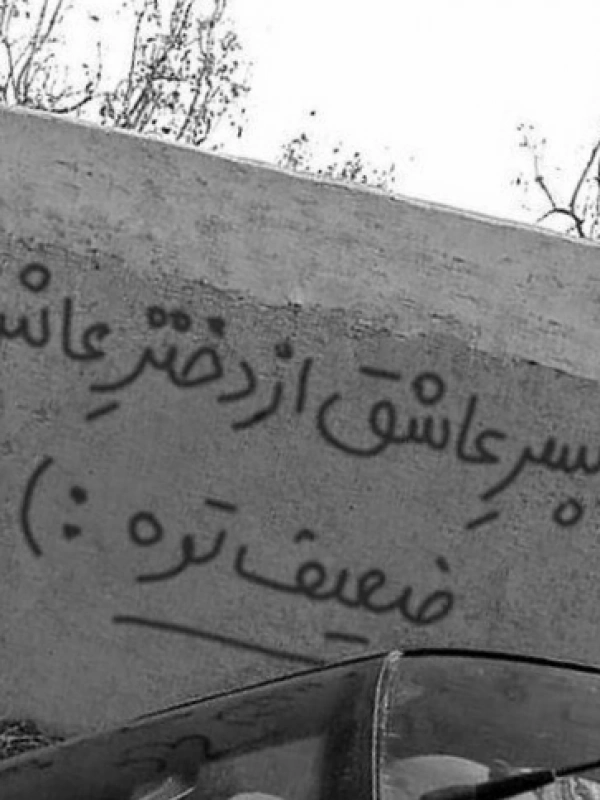 پسرِ عاشق از دخترِ عاشق
ضعیف تره :)